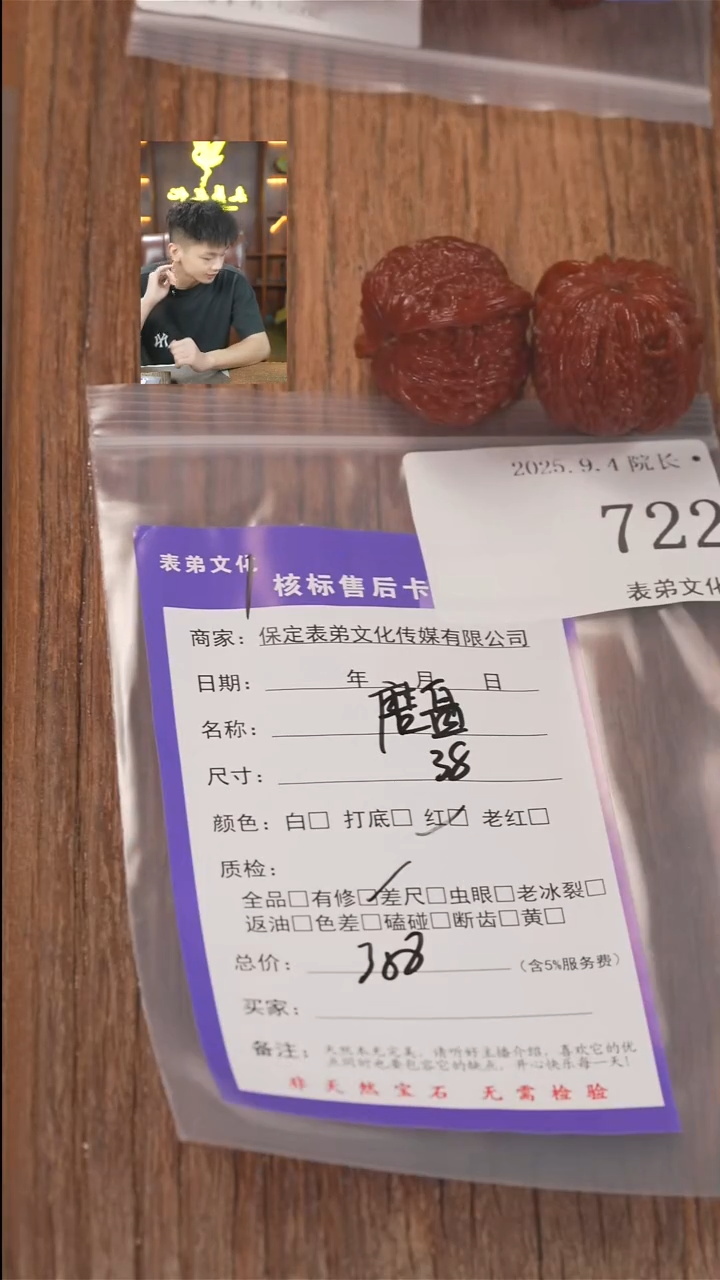 2025.9.4 院长
722
表弟文化
表弟文化
核标售后卡
商家：保定表弟文化传媒有限公司
日期： 年 月 日
名称： 磨盘
尺寸： 38
颜色：白□ 打底□ 红☑ 老红□
质检：
全品□有修☑差尺□虫眼□老冰裂□
返油□色差□磕碰□断齿□黄□
总价： （含5%服务费）
买家：
备注：天然本无完美，请听好主播介绍，喜欢它的优
点同时也要包容它的缺点，开心快乐每一天！
非天然宝石 无需检验